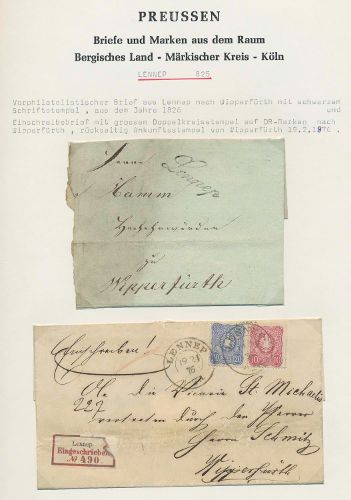 PREUSSEN
Briefe und Marken aus dem Raum
Bergisches Land - Märkischer Kreis - Köln
LENNEP 825
Vorphilatelistischer Brief aus Lennep nach Wipperfürth mit schwarzem
Schriftstempel , aus dem Jahre 1826 und
Einschreibebrief mit grossem Doppelkreisstempel auf DR-Marken nach
Wipperfürth , rückseitig Ankunftsstempel von Wipperfürth 19.2.1876 .
Herrn
Lennep
Hamm
Hochehrwürden
zu
Wipperfürth
Einschreiben!
LENNEP
19 2
76
20
10
die Pfarrei St. Michaelis
227
vertreten durch den Pfarrer
Herrn Schmitz
Wipperfürth
Lennep.
Eingeschrieben.
No 490.